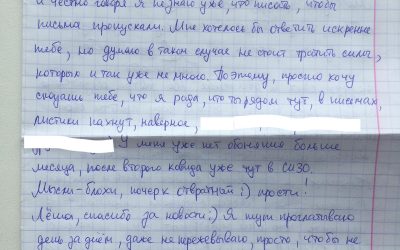 и честно говоря я не знаю уже, что писать, чтобы
письма пропускали. Мне хотелось бы ответить искренне
тебе, но думаю в таком случае не стоит тратить силы,
которых и так уже не много. Поэтому, просто хочу
сказать тебе, что я рада, что ты рядом тут, в письмах,
листики пахнут, наверное,
У меня уже нет обоняния больше
месяца, после второго ковида уже тут в СИЗО.
Мысли-блохи, почерк отвратный :) прости!
Лёша, спасибо за новости :) Я тут проглатываю
день за днём, даже не пережёвываю, просто, чтобы не